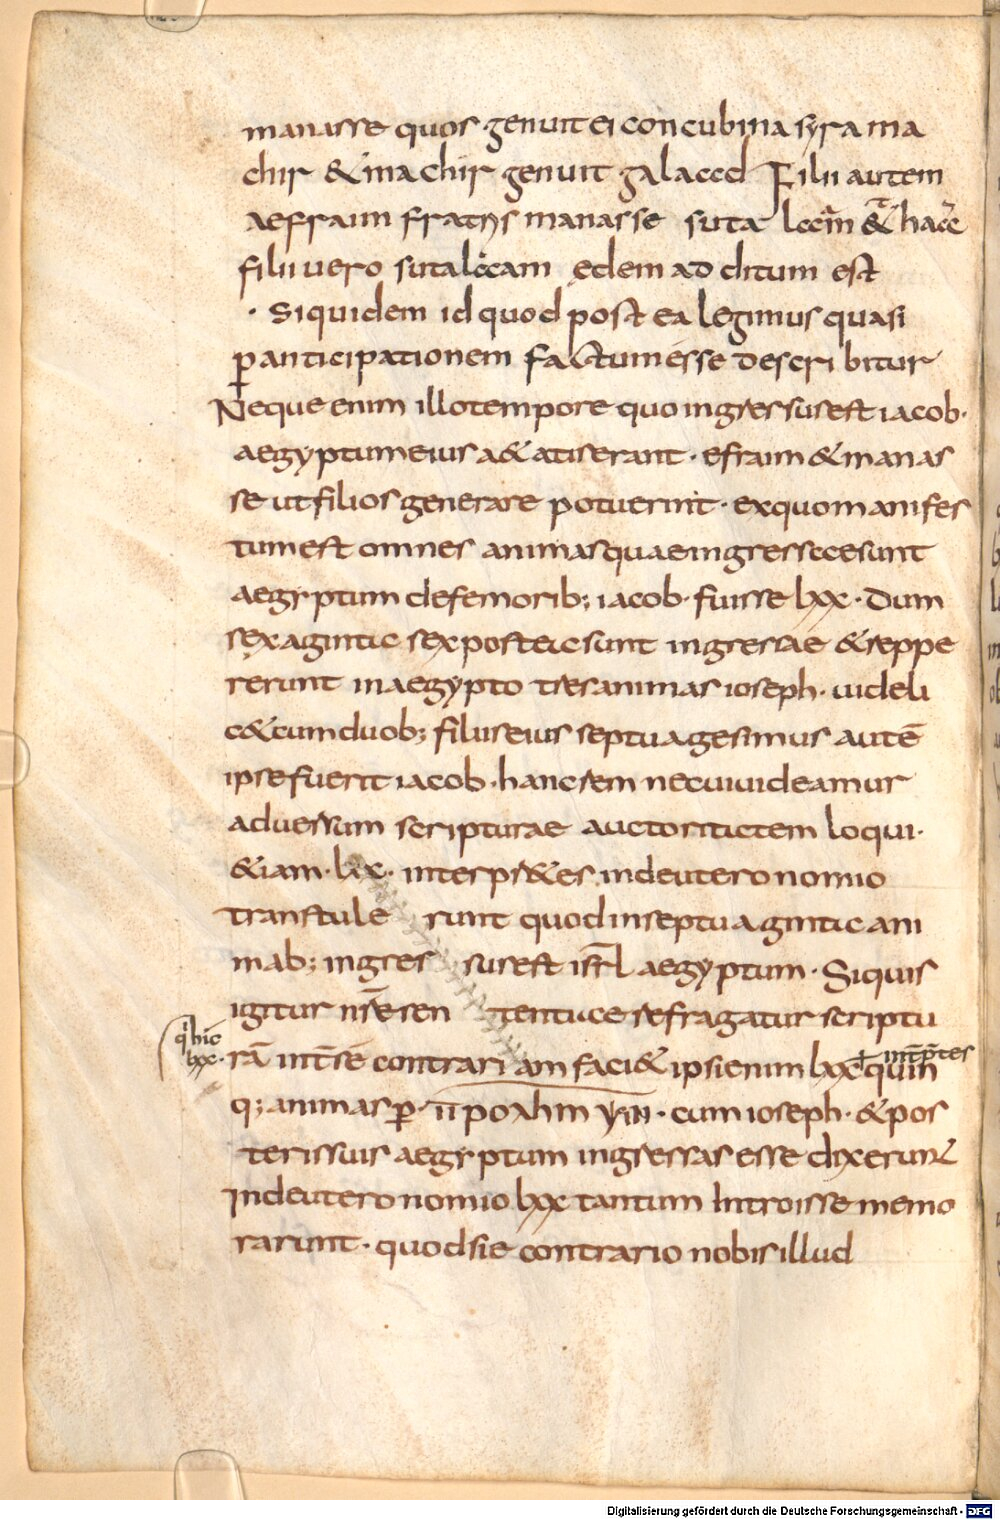 manasse quos genuit ei concubina syra ma
chir & machir genuit galaad Filii autem
aefraim fratris manasse sutalaam & haec
filii vero sutalaam edem ad ditum est
· Siquidem id quod post ea legimus quasi
p anticipationem factum esse descri bitur
Neque enim illo tempore quo ingressus est iacob·
aegyptum eius a&atis erant· efraim & manas
se ut filios generare potuerint· ex quo manifes
tum est omnes animas quae ingressae sunt
aegyptum de femorib; iacob· fuisse lxx· Dum
sexaginta sex postea sunt ingressae & reppe
rerunt in aegypto tres animas ioseph· videli
c& cum duob; filiis eius septuagesimus autē
ipse fuerit iacob· hanc rem ne cui videamur
adversum scripturae auctoritatem loqui·
&iam· lxx· interpr&es in deuteronomio
transtule runt quod in septuaginta ani
mab; ingres sus est isrl aegyptum· Siquis
igitur nrē sen tentiae refragatur scriptu
qi hic
lxx·
rā int se contrari am faci& ipsi enim lxx quin
int̄p̄tes
q; animas p· · cum ioseph· & pos
teris suis aegyptum ingressas esse dixerunt
In deuteronomio lxx tantum Introisse memo
rarunt· quod sie contrario nobis illud
Digitalisierung gefördert durch die Deutsche Forschungsgemeinschaft - DFG